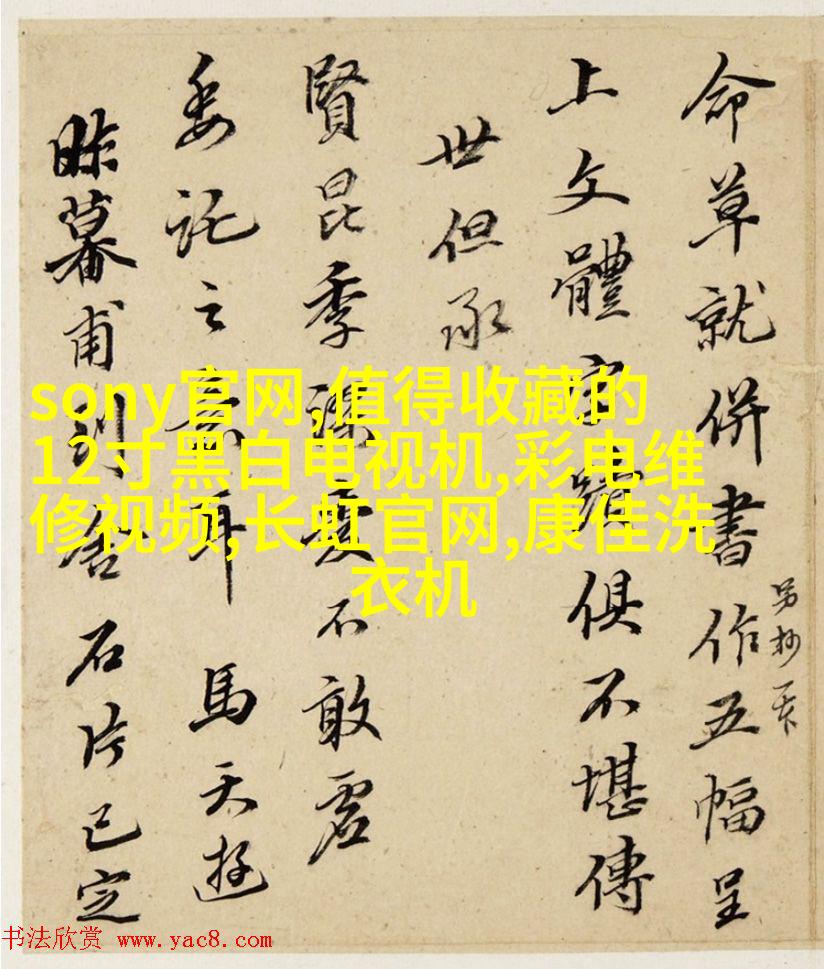 命草就併書作五幅呈
另抄一天
上文體字蹟俱不堪傳
世但承
賢昆季深愛不敢虛
委託之意耳馬天游
昨暮甫到舍石片已定
sony官网,值得收藏的
12寸黑白电视机,彩电维
修视频,长虹官网,康佳洗
衣机
书法欣赏 www.yac8.com